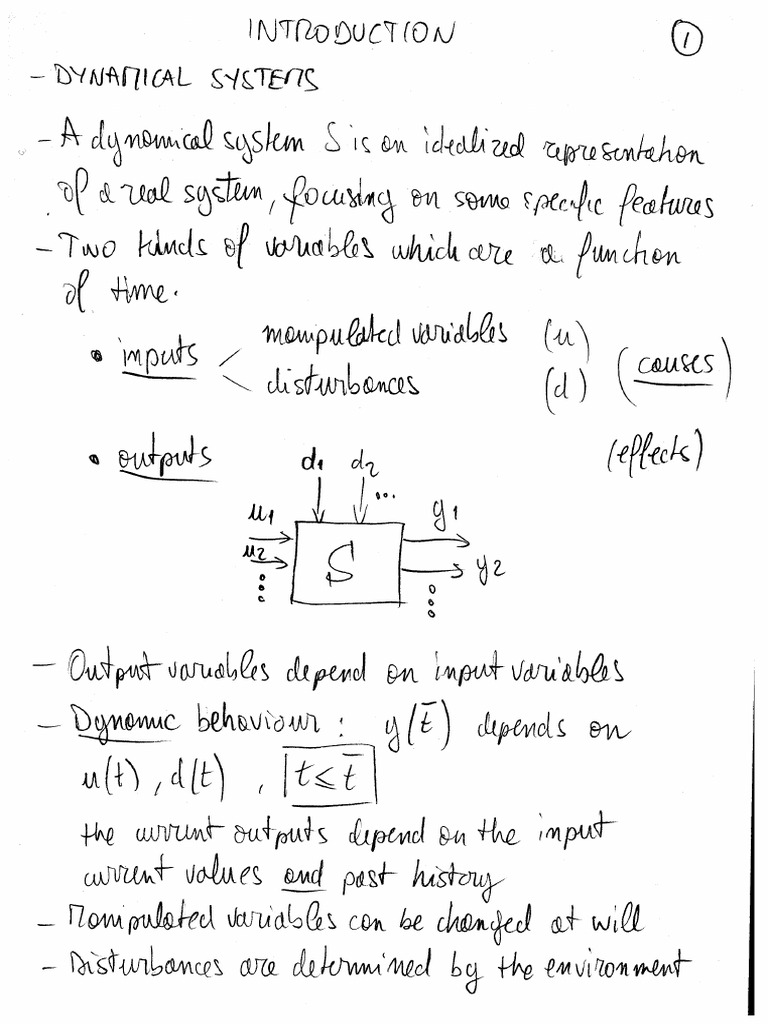 INTRODUCTION
1
- DYNAMICAL SYSTEMS
- A dynamical system S is an idealized representation
of a real system, focusing on some specific features
- Two kinds of variables which are a function
of time.
• inputs < manipulated variables (u)
disturbances (d) (causes)
• outputs (effects)
d1 d2
...
u1 y1
u2 S y2
- Output variables depend on input variables
- Dynamic behaviour : y(t̄) depends on
u(t), d(t), t ≤ t̄
the current outputs depend on the input
current values and past history
- Manipulated variables can be changed at will
- Disturbances are determined by the environment